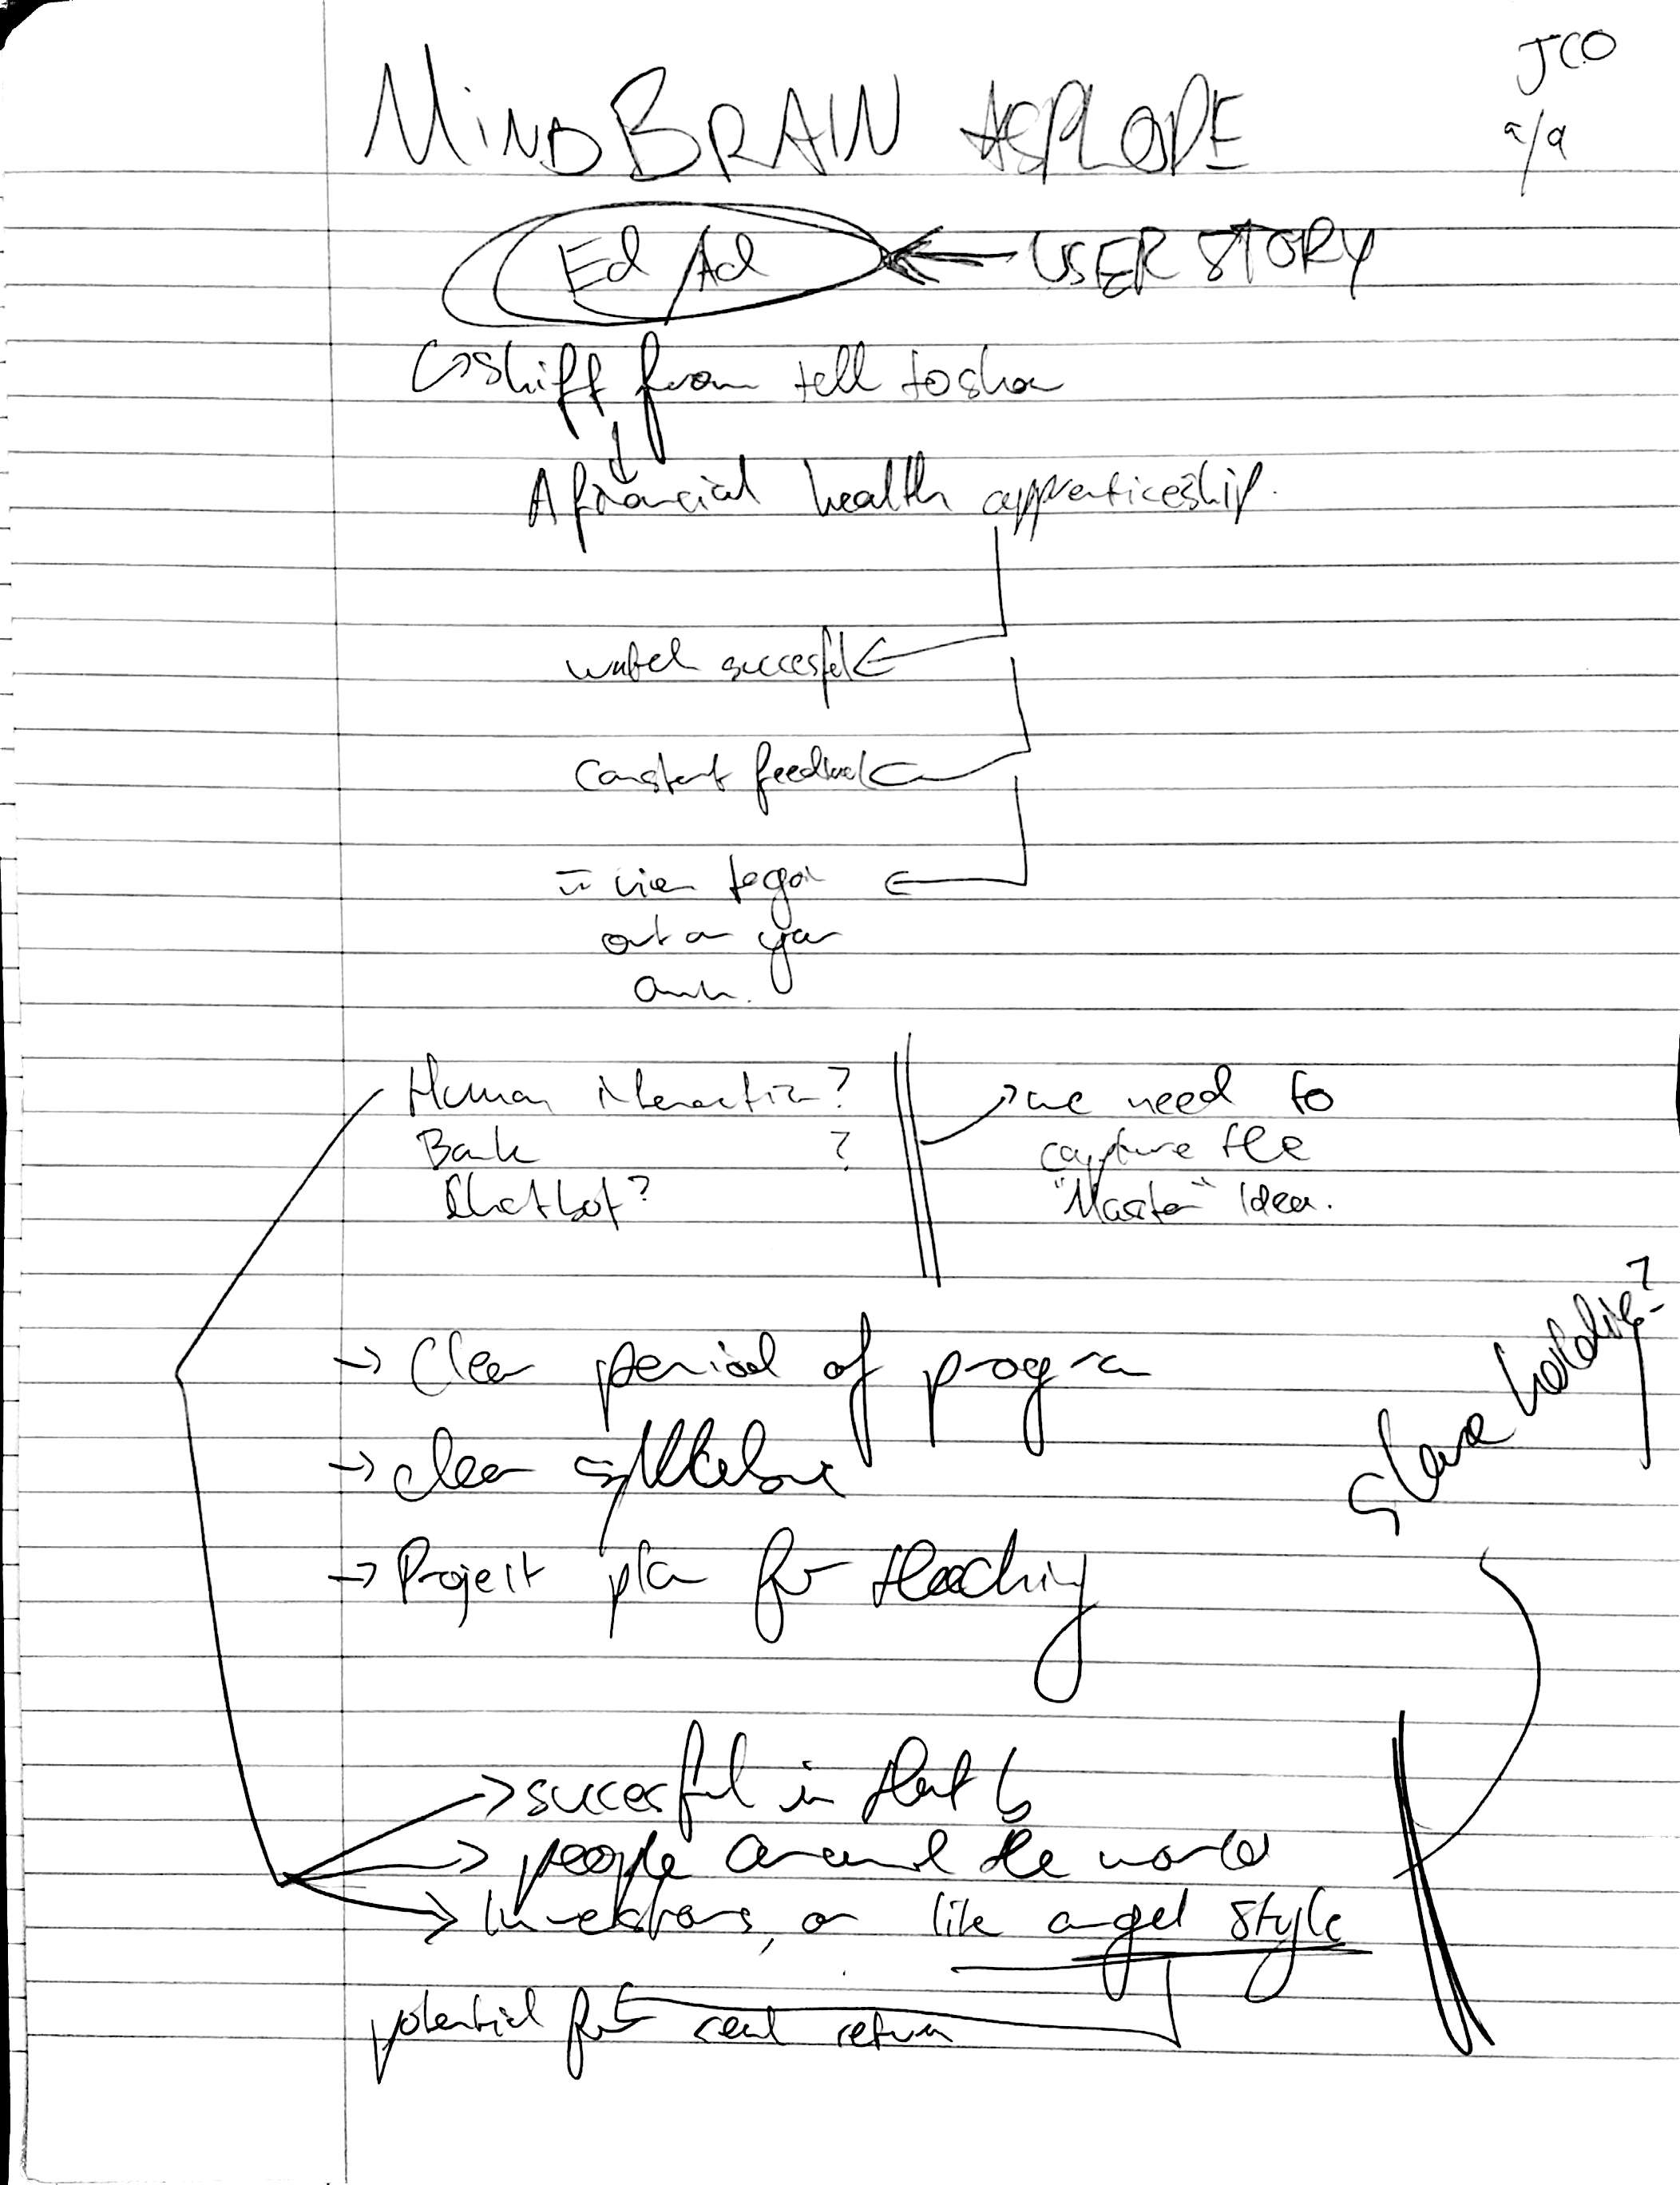 JCO
a/a
MIND BRAIN ASPLODE
Ed/Ad ← USER STORY
↳ shift from tell to show
A financial health apprenticeship.
watch succesful
constant feedback
out on your
own.
Human interaction?
Bank ?
Chatbot?
→ we need to
capture the
"Master" Idea.
→ Clear period of program
→ clear syllabus
→ Project plan for teaching
→ succesful in that
→ people around the world
→ Investors, or like angel style
potential for real return